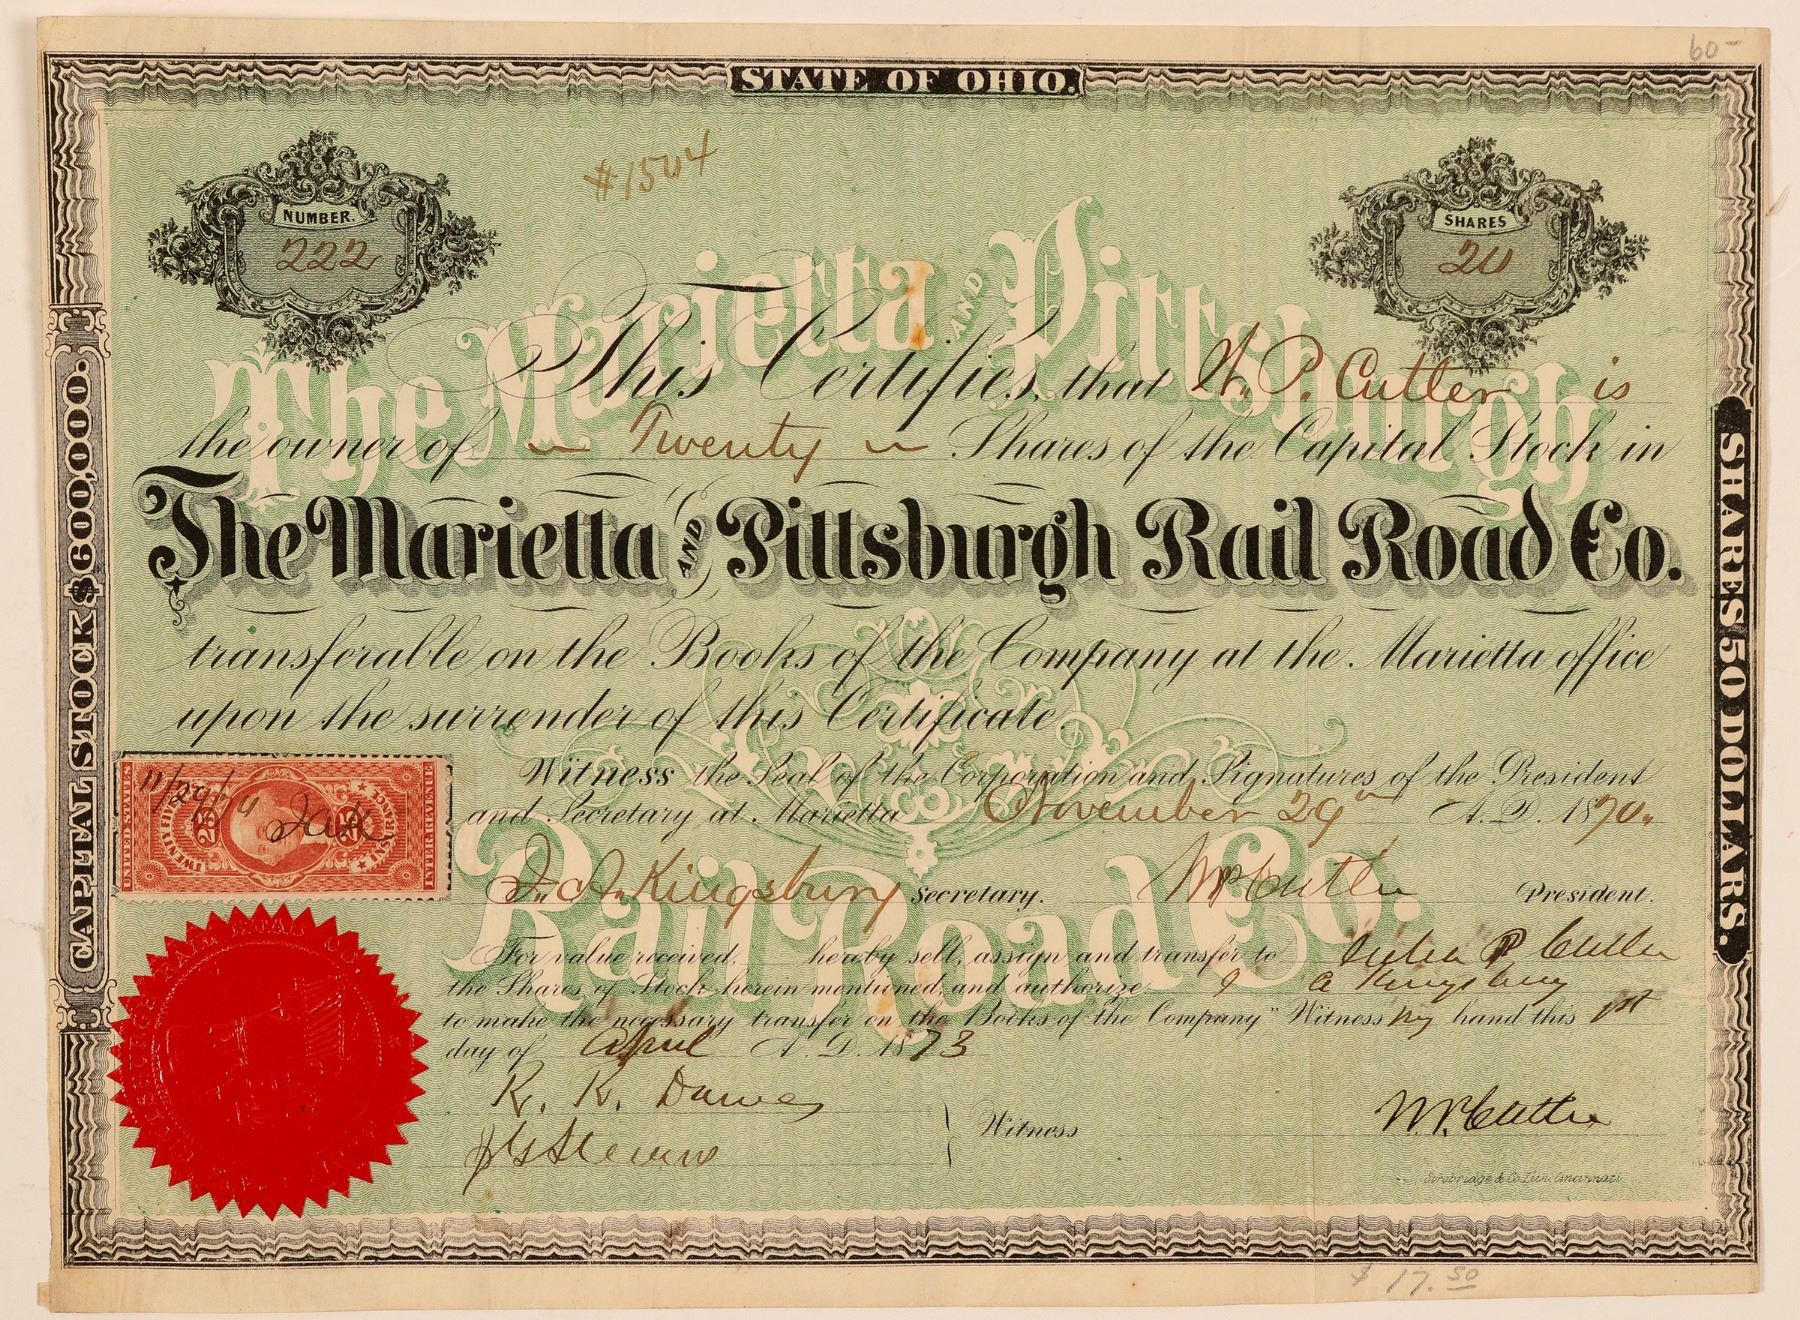 60-
STATE OF OHIO.
#1504
NUMBER.
222
SHARES
20
The Marietta AND Pittsburgh
This Certifies, that W. P. Cutler is
the owner of Twenty Shares of the Capital Stock in
The Marietta AND Pittsburgh Rail Road Co.
transferable on the Books of the Company at the Marietta office
upon the surrender of this Certificate.
Witness the Seal of the Corporation and Signatures of the President
and Secretary at Marietta November 29th A.D. 1870.
Kingsbury Secretary. W P Cutler President.
Rail Road Co.
For value received, hereby sell, assign and transfer to Julia P Cutler
the Shares of Stock herein mentioned, and authorize A Kingsbury
to make the necessary transfer on the Books of the Company Witness my hand this 1st
day of April A.D. 1873
R. R. Dawes
Witness
W. P. Cutler
Strobridge & Co. Lith. Cincinnati
CAPITAL STOCK $600,000.
SHARES 50 DOLLARS.
UNITED STATES
INTER. REVENUE
25
11/29/70
$17.50